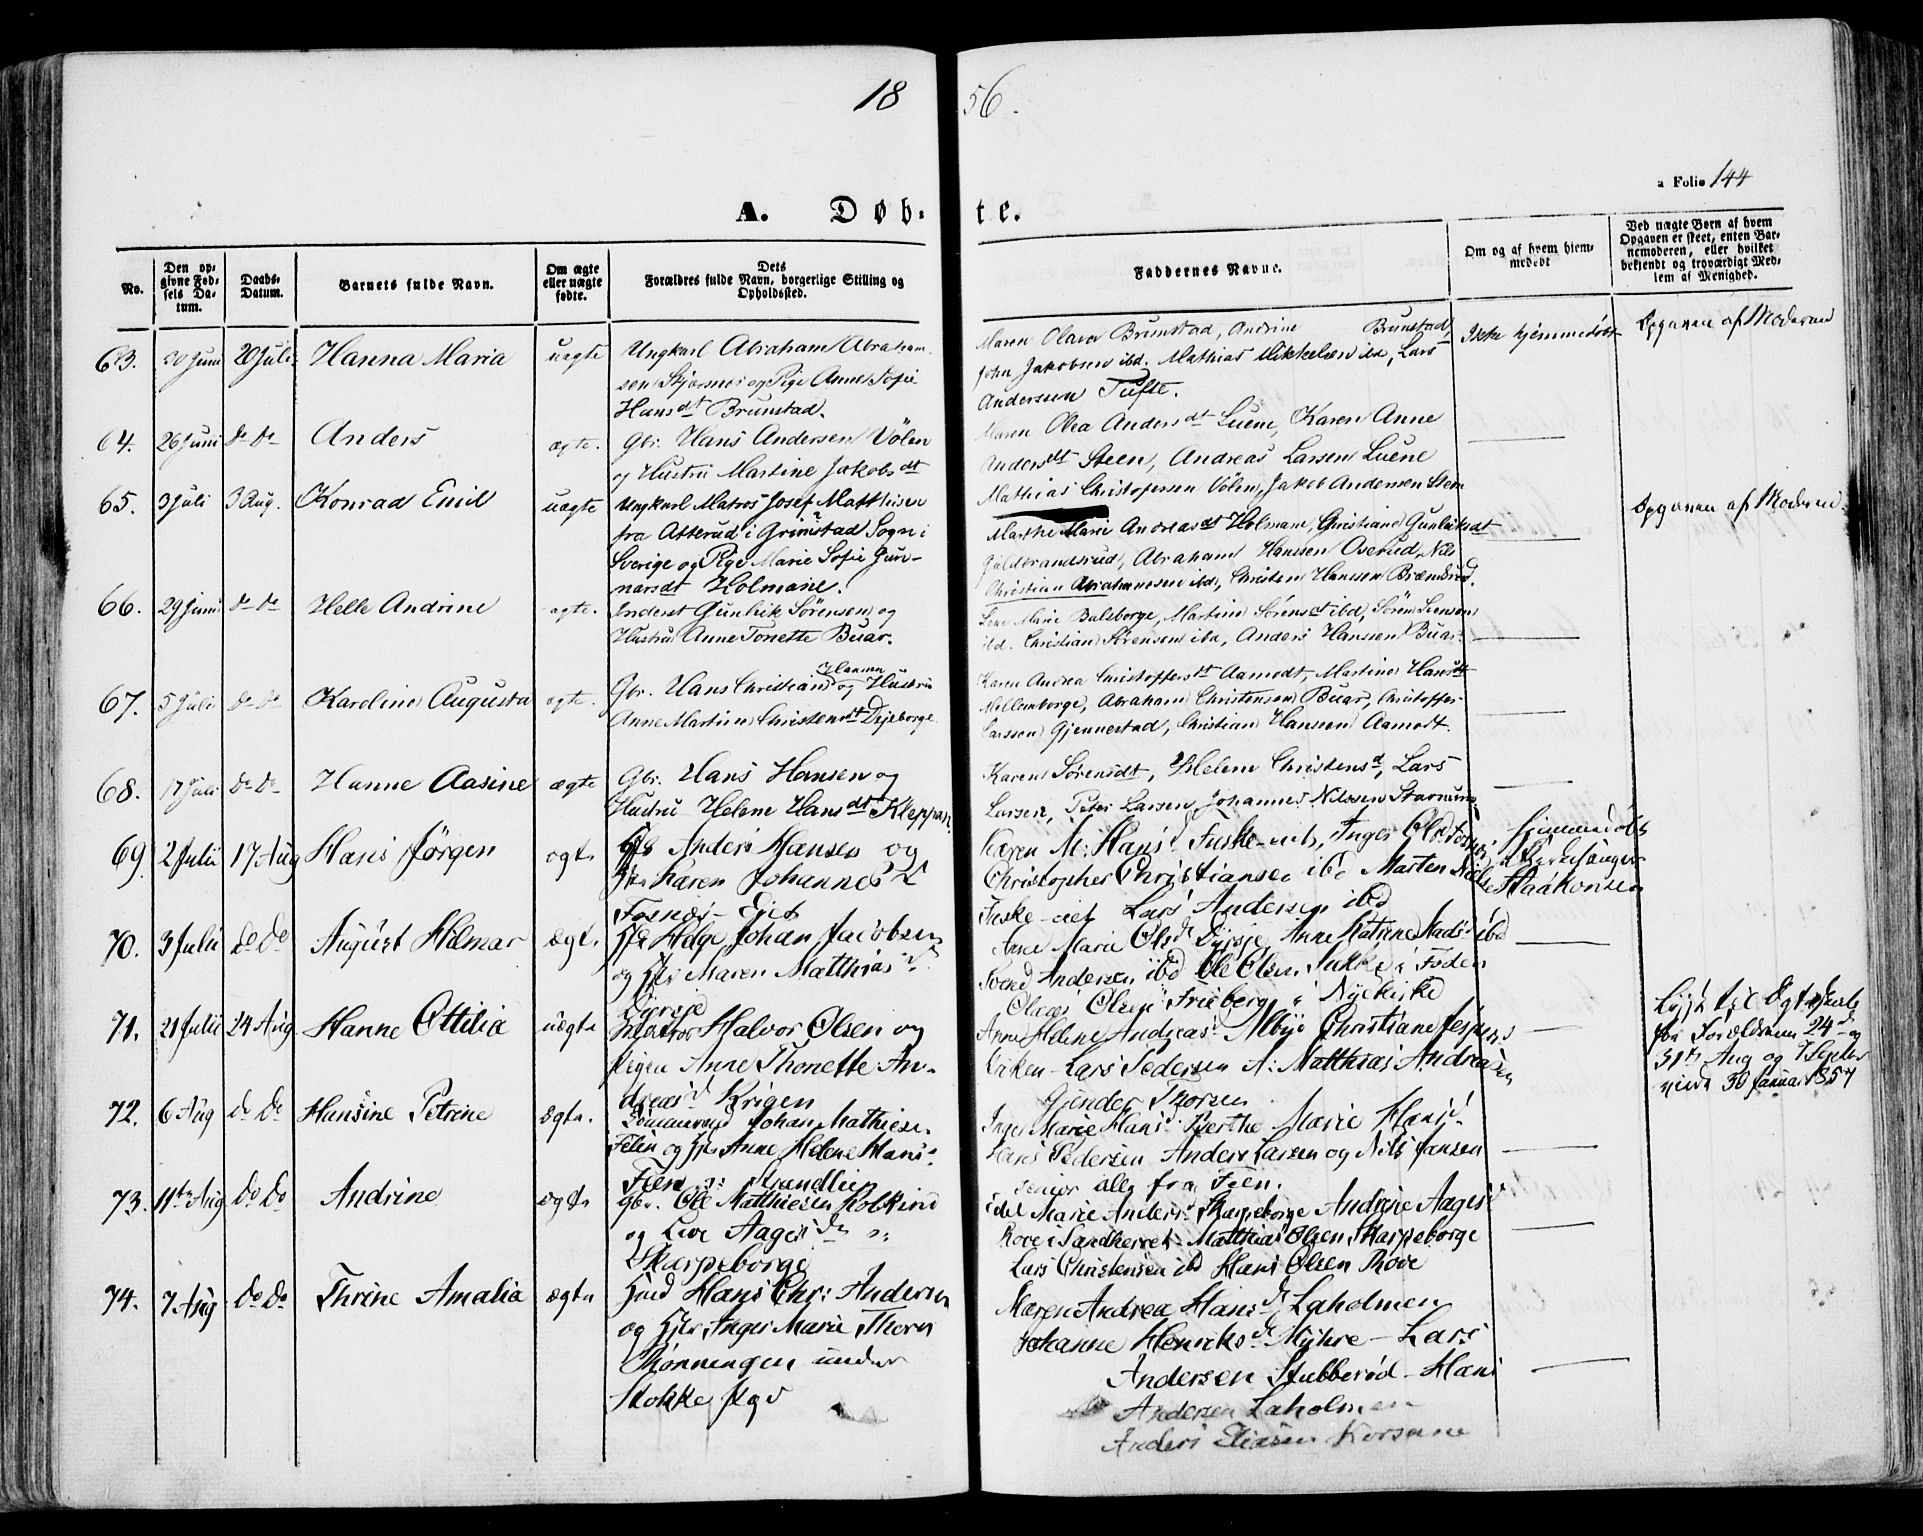 18 56.
a Folio 144
A. Døb- te.
No.
Den opgivne Fødsels Datum.
Daabs-Datum.
Barnets fulde Navn.
Om ægte eller uægte fødte.
Dets Forældres fulde Navn, borgerlige Stilling og Opholdssted.
Faddernes Navne.
Om og af hvem hjemmedøbt
Ved uægte Børn af hvem Opgaven er skeet, enten Barnemoderen, eller hvilket bekjendt og troværdigt Medlem af Menighed.
63. 20 Juni 20 Juli Hanna Maria uægte Ungkarl Abraham Abraham-
sen og Pige Anne Sofie
Hansdt Brunstad.
Maren Olava Brunstad, Andrine Brunstad,
John Jakobsen ibd. Mathias Mikkelsen ibd, Lars
Andersen Tufte.
Ikke hjemmedøbt
Opgaven af Moderen
64. 26 Juni do do Anders ægte. Gbr. Hans Andersen Vølen
og Hustru Martine Jakobsdt
Maren Olea Andersdt Luene, Karen Anne
Andersdt Steen, Andreas Larsen Luene
Mathias Christophersen Vølen, Jakob Andersen Steen
65. 3 Juli 3 Aug. Konrad Emil uægte Ungkarl Matros Josef Matthisen
fra Atterud i Grimstad Sogn i
Sverige og Pige Marie Sofie Gun-
narsdt Holmane.
Marthe Marie Andreasdt Holmane, Christiane Gunleiksdt
Guldbrandsrud, Abraham Hansen Oserud, Nils
Christian Abrahamsen ibd, Christen Hansen
Opgaven af Moderen
66. 29 Juni do do Helle Andrine ægte. Inderst Gunleik Sørensen og
Hustru Anne Tonette Buar.
Marie Bulsborge, Martine Sørensdt ibd, Søren Svensen
ibd. Christian Sørensen ibd, Anders Hansen Buar.
67. 5 Juli do do Karoline Augusta ægte. Gbr. Hans Christian Hansen og Hustru
Anne Martine Christensdt Dejeborge
Karen Andrea Christoffersdt Aamodt, Martine Hansdt
Mellemborge, Abraham Christensen Buar, Christoffer
Larssen Gjennestad, Christian Hansen Aamodt.
68. 17 Juli do do Hanne Aasine ægte Gbr. Hans Hansen og
Hustru Helene Hansdt Kleppan.
Karen Sørensdt, Helene Christensd, Lars
Larsen, Peter Larsen, Johannes Nilssen
69 2 Julii 17 Aug Hans Jørgen ægte Anders Hansen og
Karen Johannesd
Fosnæs-Eiet
Karen M. Hansd Fuske-eiet, Inger Olsd
Christopher Christiansen ibd Marten Niels
Fuske-eiet Lars Andersen ibd
hjemmedøbt
af Kirkesanger
Haakonsen
70. 3 Julii do do August Hilmar ægt. Helge Johan Jacobsen
og Maren Matthiasd
Dyrsje
Anne Marie Olsd Dyrsje, Anne Katrine Madsd ibd
Svend Andersen ibd Ole Olsen
Olaus Olsen Frieberg i Nyekirke
71. 21 Julii 24 Aug Hanne Ottilia uægte Halvor Olsen og
Pigen Anne Thonette An-
dreasd Krigen
Anne Helene Andreasd Christiane
Lars Pedersen Matthias Andreasen
Gjender Thorsen
Lyst til Ægteskab
for Forældrene 24d og
31te Aug og 7 Septbr
viede 30 Januar 1857
72. 6 Aug do do Hansine Petrine ægte. Sømansmand Johan Mathiesen
Feien og Anne Helene Hans
Feen Strandlien
Inger Marie Hansd Berthe Marie Hansd
Hans Pedersen Anders Larsen og Nils Jansen
senior alle fra Feen.
73. 11te Aug do do Andrine ægte Gbr. Ole Matthiesen
og Live Aagesd
Skarpeborge
Marie Andersd Skarpeborge Andrine Aagesd
Rove i Sandherred Matthias Olsen Skarpeborge
Lars Christensen ibd Hans Olsen Rove
74. 7 Aug do do Thrine Amalia ægte Hans Chr: Andersen
og Inger Marie Thors
Rønningen under
Stokke Pgd
Maren Andrea Hansd Laholmen
Johanne Henriksd Myhre - Lars
Andersen Stubberød - Hans
Andersen Laholmen
Anders Eliasen Korsane